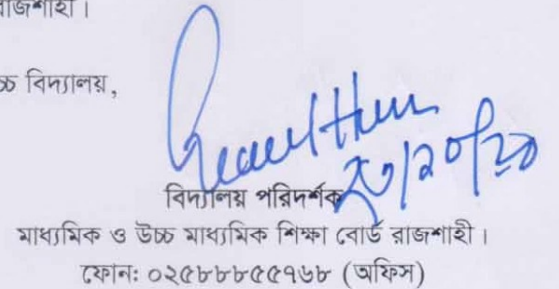 রাজশাহী।
বিদ্যালয়,
বিদ্যালয় পরিদর্শক
মাধ্যমিক ও উচ্চ মাধ্যমিক শিক্ষা বোর্ড রাজশাহী।
ফোন: ০২৫৮৮৮৫৫৭৬৮ (অফিস)